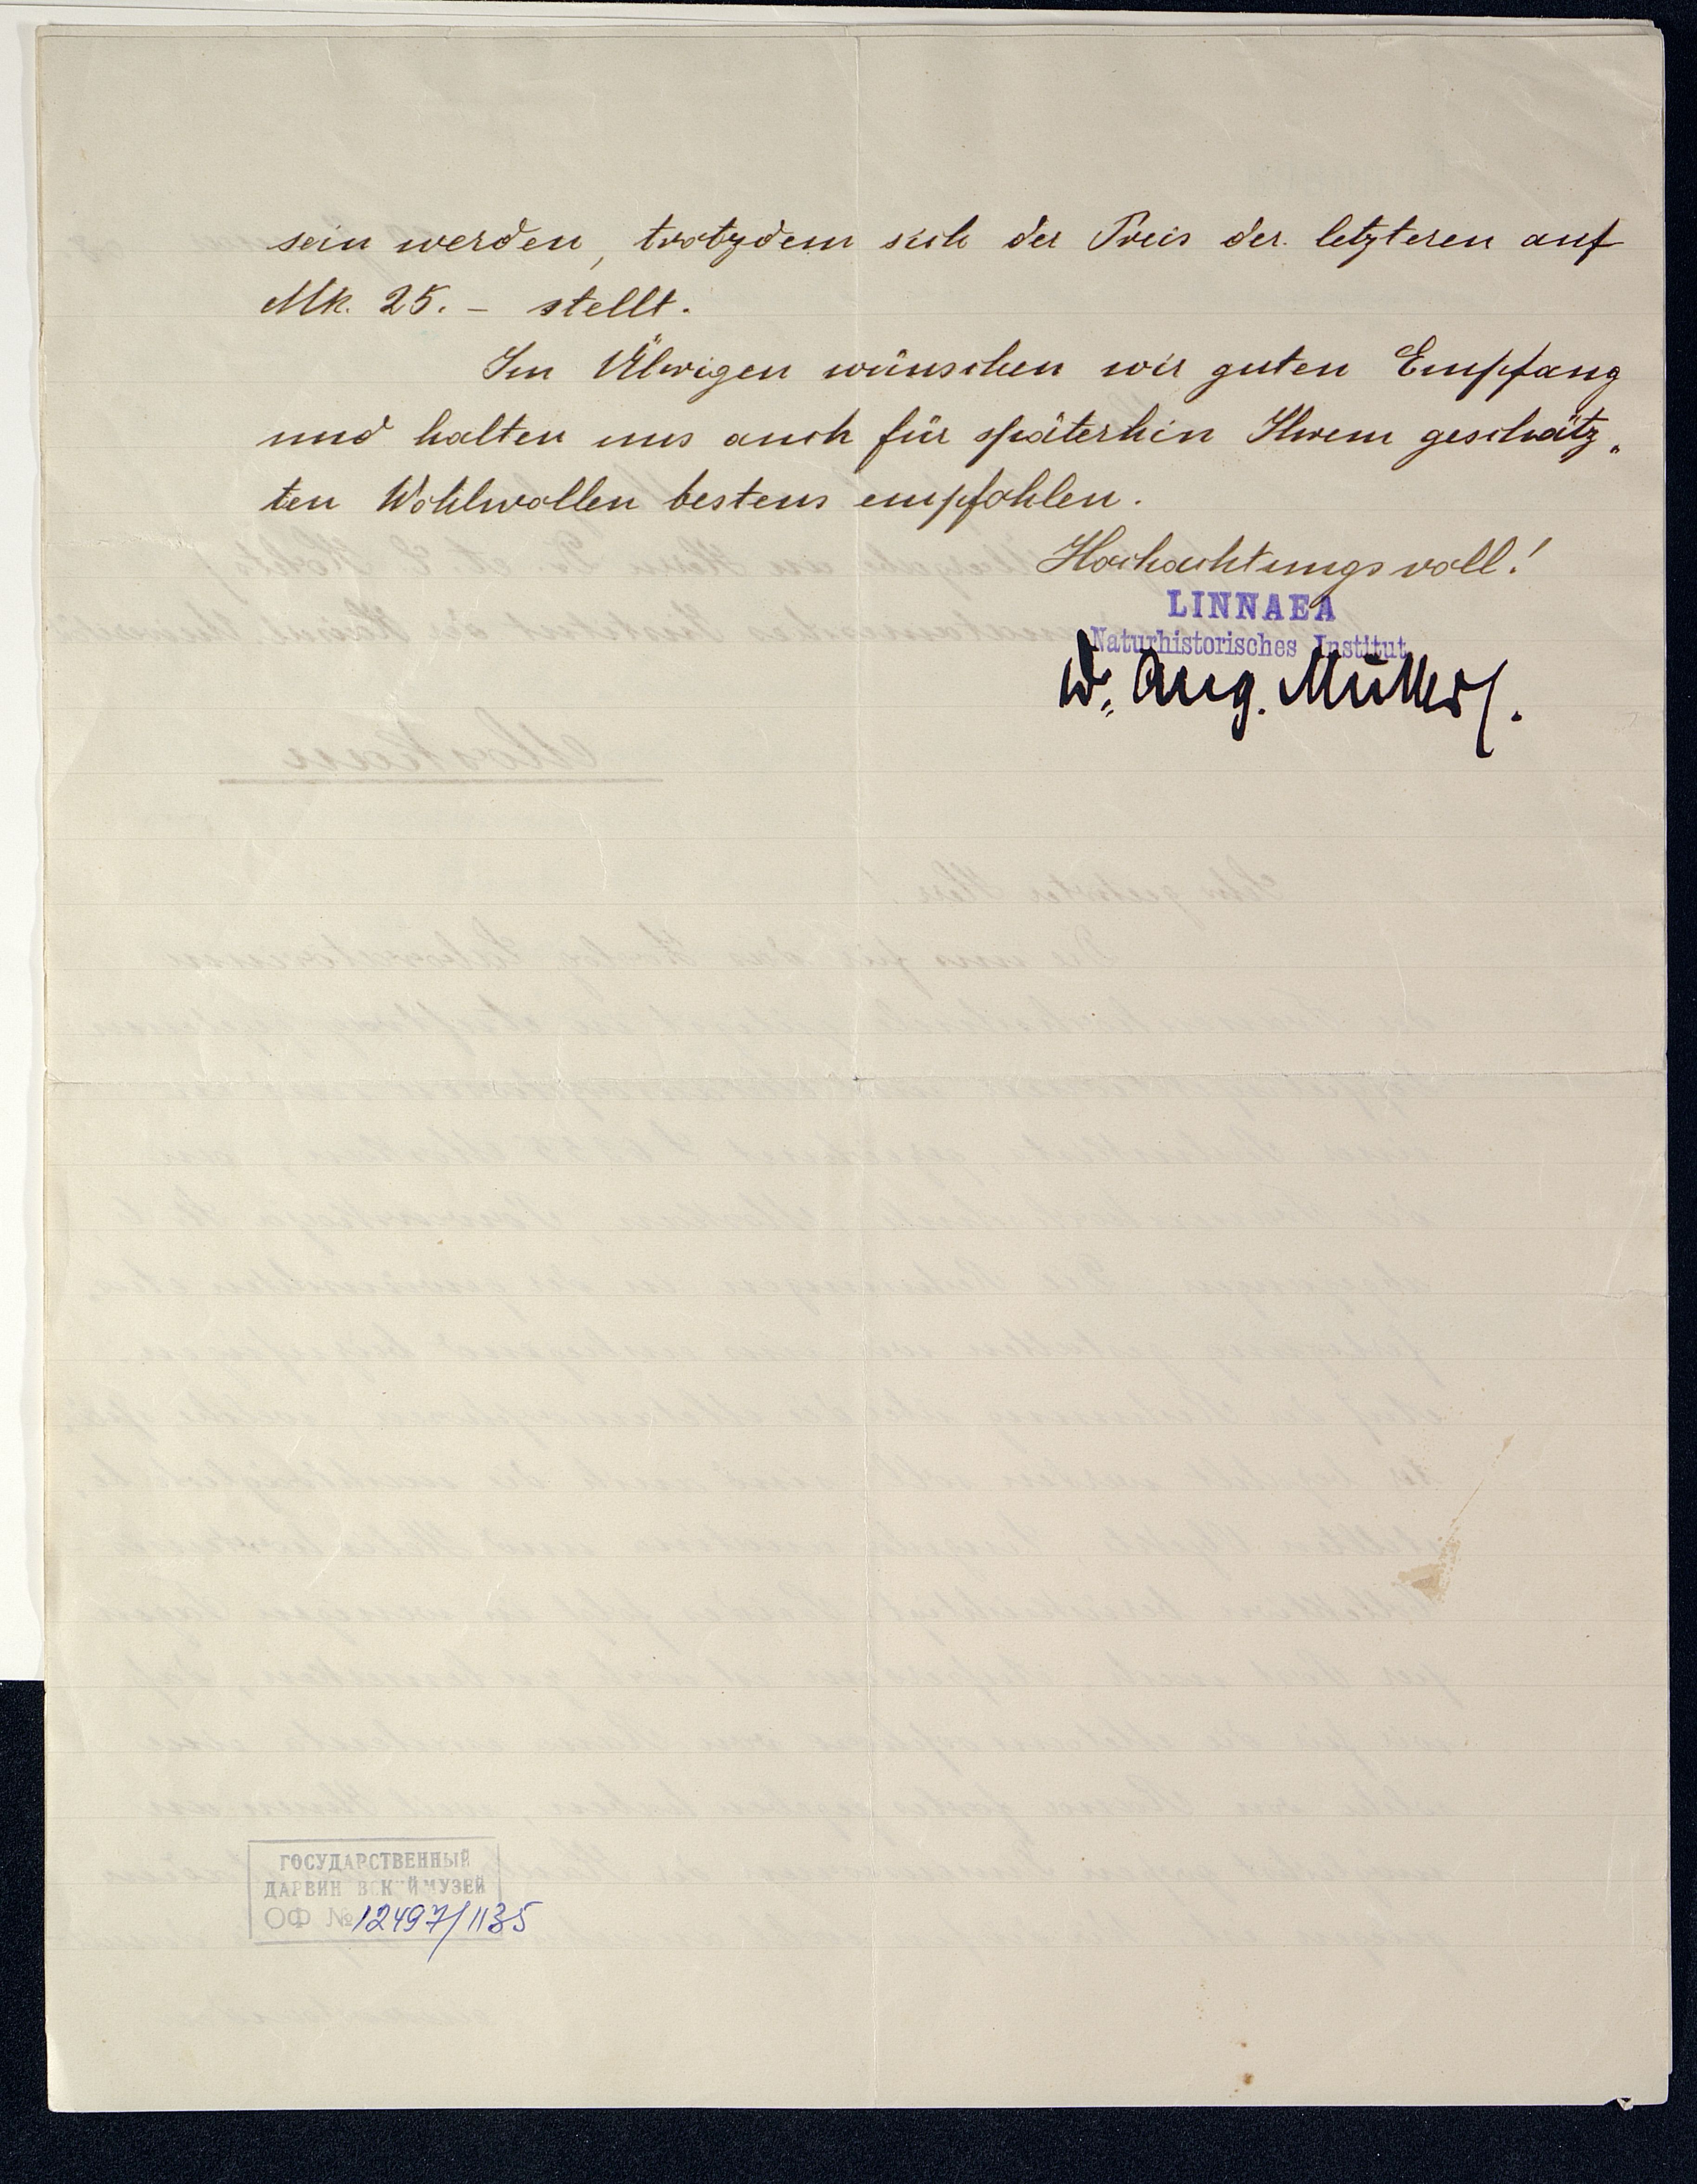 sein werden, trotzdem sich der Preis der letzteren auf
Mk. 25.- stellt.
Im Übrigen wünschen wir guten Empfang
und halten uns auch für späterhin Ihrem geschätz„
ten Wohlwollen bestens empfohlen.
Hochachtungsvoll!
LINNAEA
Naturhistorisches Institut
Dr. Aug. Müller.
ГОСУДАРСТВЕННЫЙ
ДАРВИНВСКИЙ МУЗЕЙ
ОФ № 12497/1135